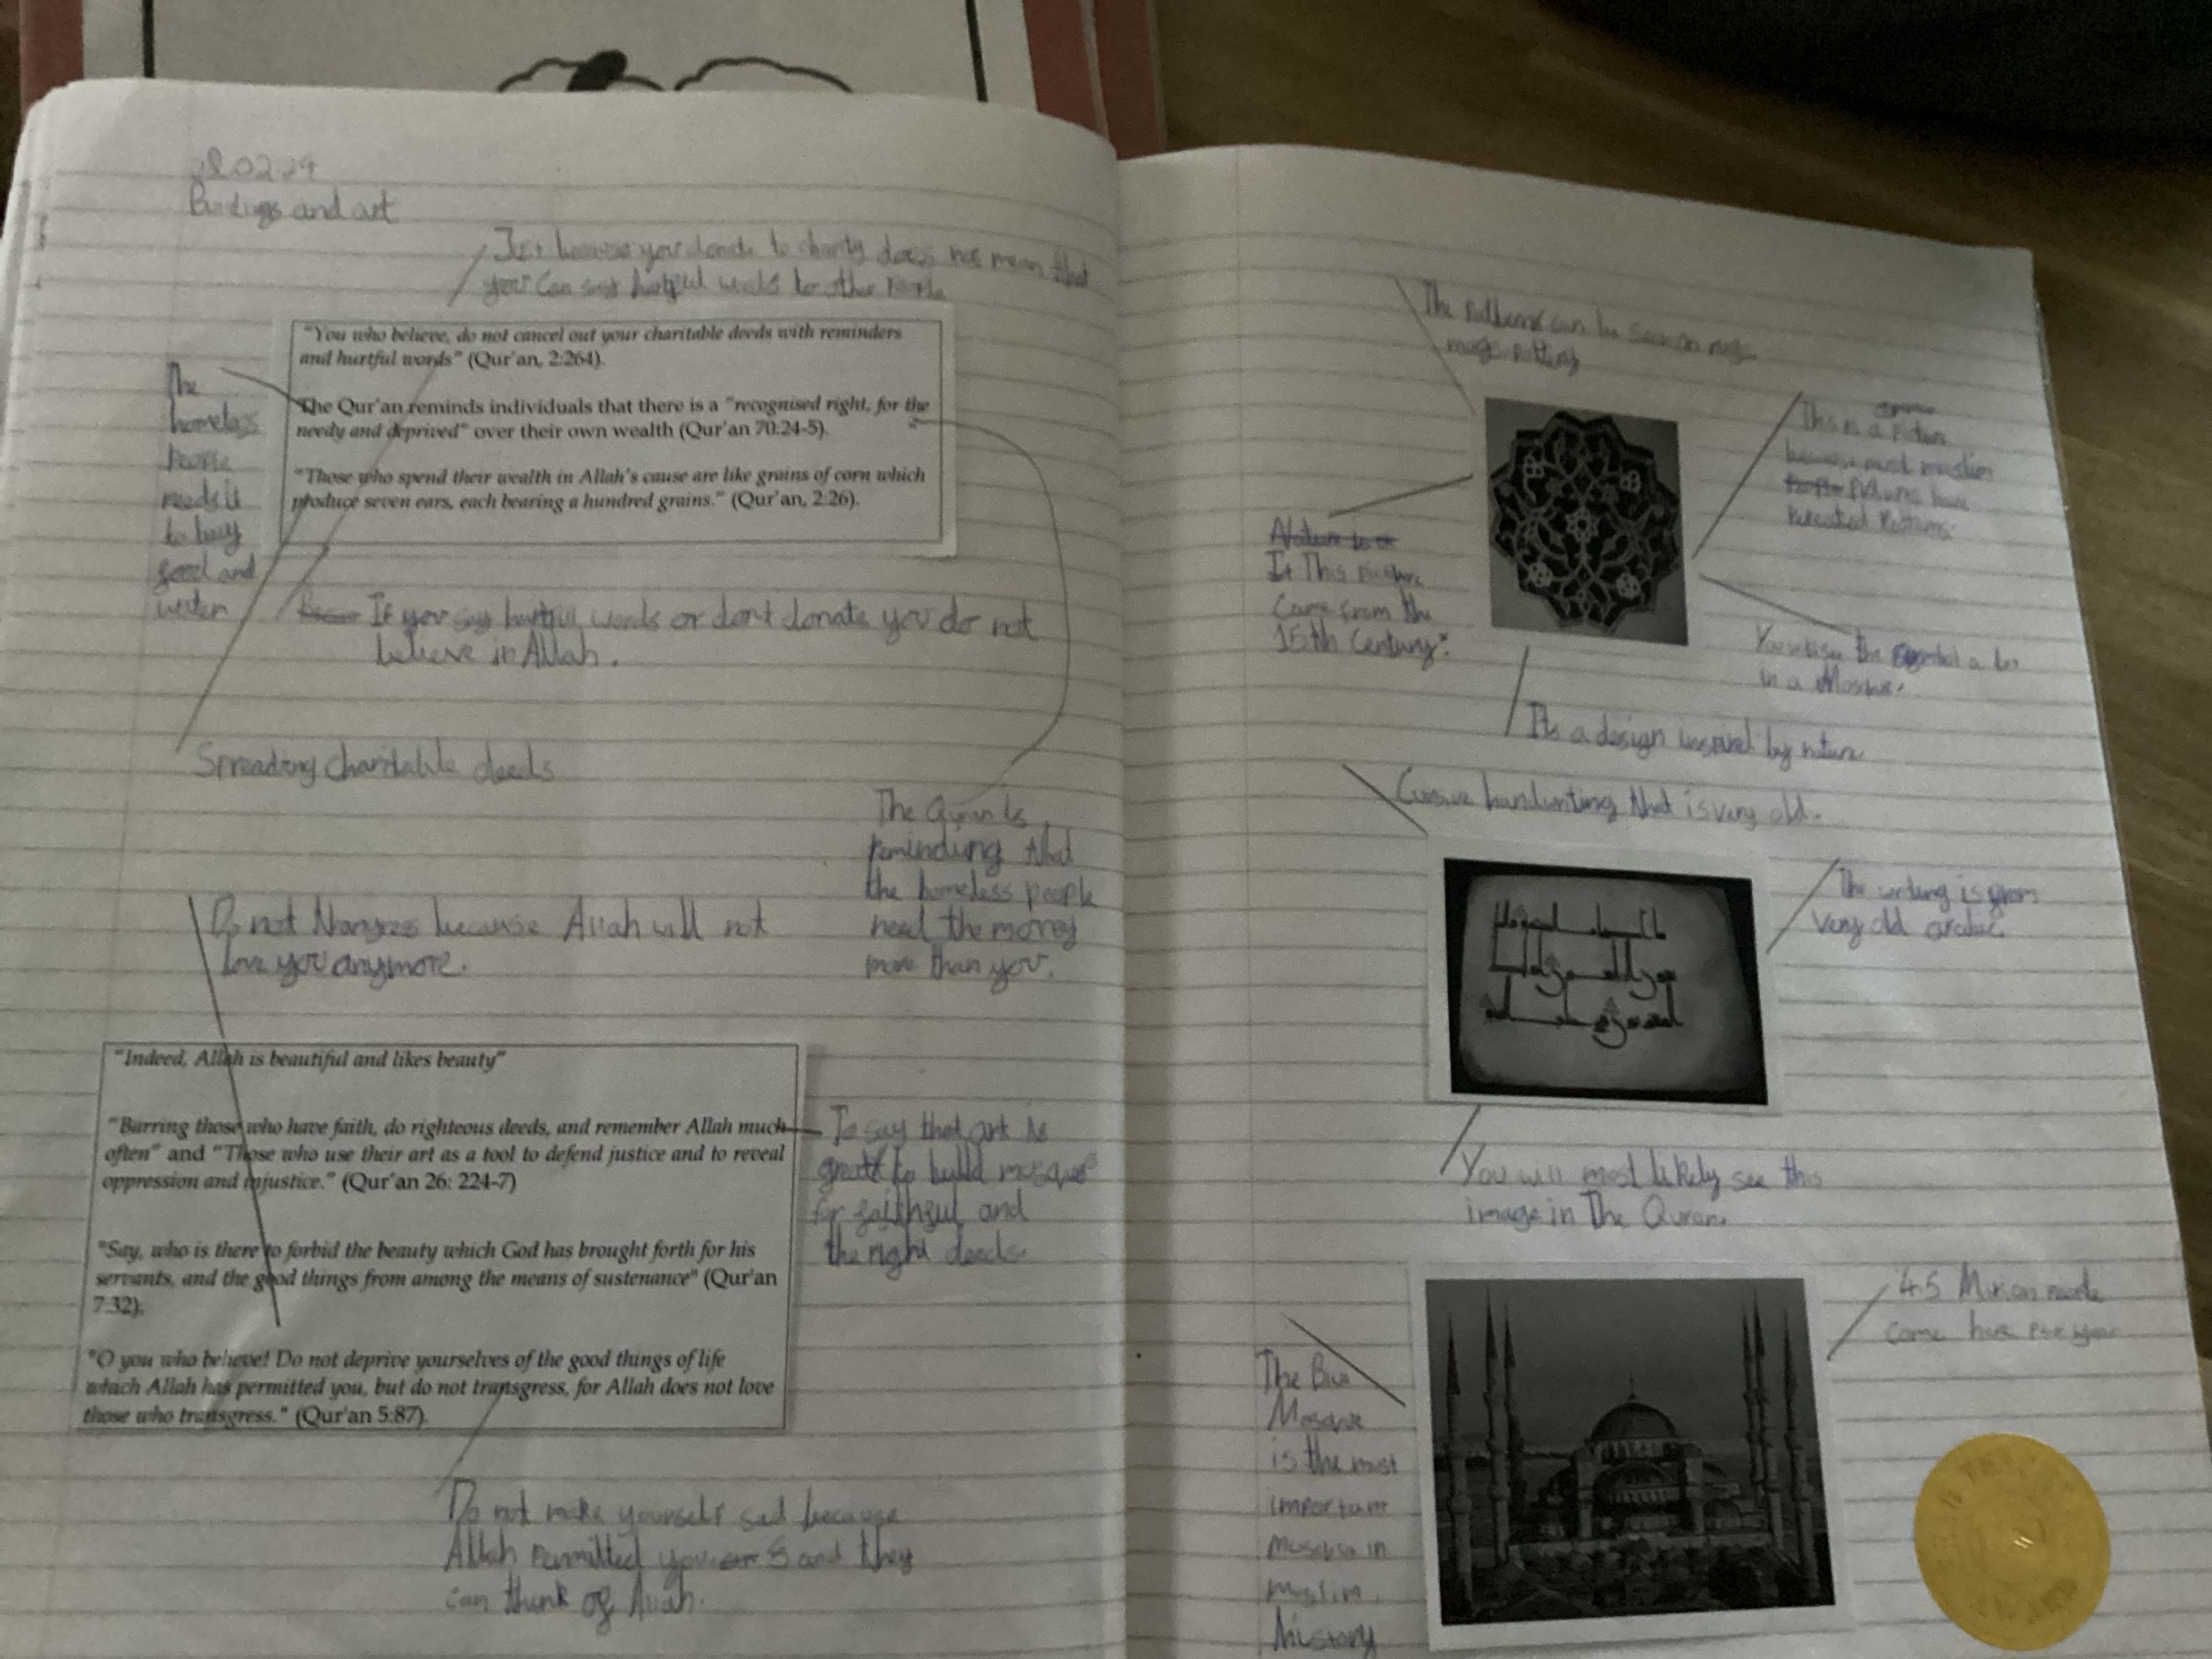 Buildings and art
Just because you donate to charity does not mean that
you can say hurtful words to other people
"You who believe, do not cancel out your charitable deeds with reminders
and hurtful words" (Qur'an, 2:264).
The Qur'an reminds individuals that there is a "recognised right, for the
needy and deprived" over their own wealth (Qur'an 70:24-5).
"Those who spend their wealth in Allah's cause are like grains of corn which
produce seven ears, each bearing a hundred grains." (Qur'an, 2:26).
The
homeless
people
needs it
to buy
food and
water
If you say hurtful words or don't donate you do not
believe in Allah.
Spreading charitable deeds
The Quran is
reminding that
the homeless people
need the money
more than you.
Do not because Allah will not
love you anymore.
"Indeed, Allah is beautiful and likes beauty"
"Barring those who have faith, do righteous deeds, and remember Allah much
often" and "Those who use their art as a tool to defend justice and to reveal
oppression and injustice." (Qur'an 26: 224-7)
"Say, who is there to forbid the beauty which God has brought forth for his
servants, and the good things from among the means of sustenance" (Qur'an
7:32).
"O you who believe! Do not deprive yourselves of the good things of life
which Allah has permitted you, but do not transgress, for Allah does not love
those who transgress." (Qur'an 5:87).
To say that art is
great to build mosques
for faithful and
the right deeds.
Do not make yourself sad because
Allah permitted you and they
can think of Allah.
The patterns can be seen on
This is a pattern
because most muslim
patterns have
repeated patterns.
It This picture
came from the
15th Century.
the symbol a lot
in a Mosque.
Its a design inspired by nature
Cursive handwriting that is very old.
The writing is from
very old arabic.
You will most likely see this
image in The Quran.
The Blue
Mosque
is the most
important
mosque in
muslim
history
4-5 Million people
come here per year